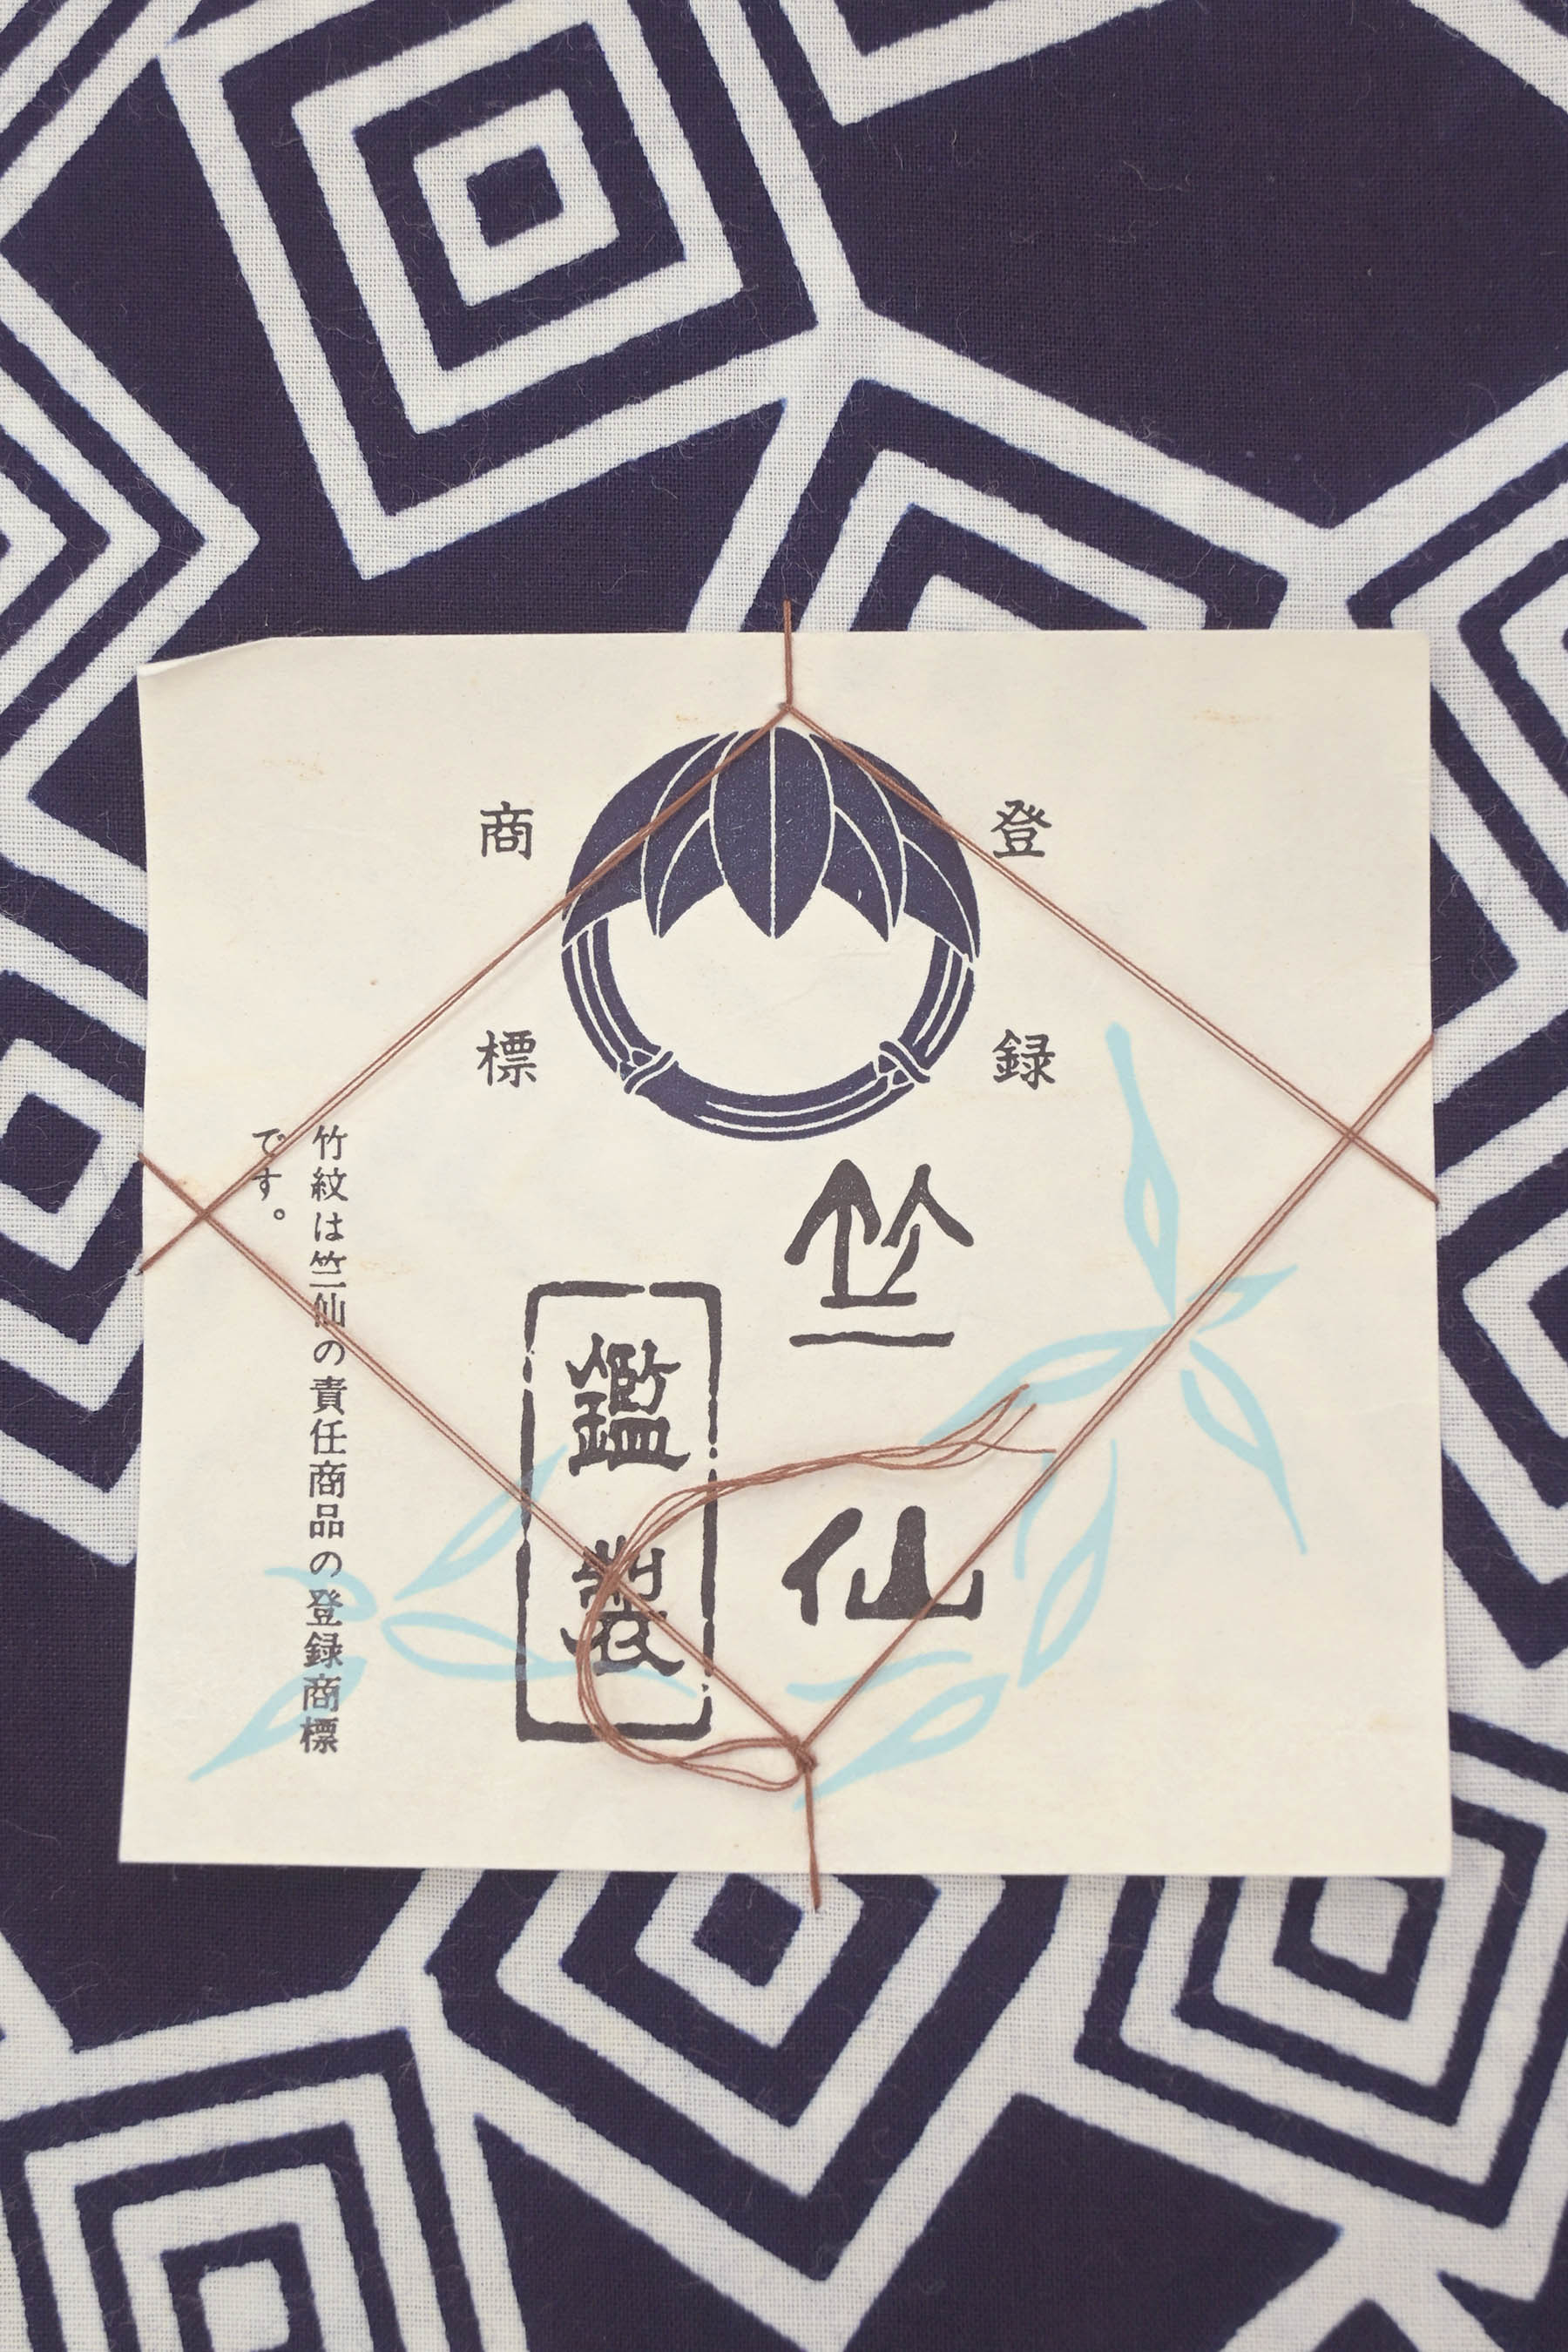 登録
商標
竺仙
鑑製
竹紋は竺仙の責任商品の登録商標
です。